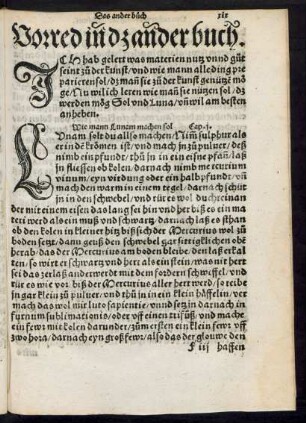 Das ander bůch
Vorred in dz ander buch.
ICh hab gelert was materien nutz vnnd gůt
seint zů der kunst/vnd wie mann alle ding pre
pariern sol/dz man sie zů der kunst genütze mö
ge/Nu wil ich leren wie man sie nützen sol/dz
werden mög Sol vnd Luna/vñ wil am besten
anheben.
Wie mann Lunam machen sol
LVnam solt du also machen/Nim sulphur als
er in de krömen ist/vnd mach jn zů puluer/deß
nimb ein pfundt/thů jn in ein eisne pfan/laß
jn fliessen ob kolen/darnach nimb mercurium
vinum/eyn vierdung oder ein halb pfundt/vñ
mach den warm in einem tegel/darnach schüt
jn in den schwebel/vnd rür es wol durch einan
der mit einem eisen das lang sei/hin vnd her biß es ein ma
teri werd als ein můß vnd schwartz/darnach laß es sthan
ob den kolen in kleiner hitz biß sich der Mercurius wol zů
boden setz/dann geuß den schwebel gar sittigklichen obẽ
herab/das der Mercurius am boden bleibe/den laß erkal
ten/so wirt er schwartz vnd hert als ein stein/was nit hert
sei das zerlaß anderwerdt mit dem fordern schweffel/vnd
rür es wie vor/biß der Mercurius aller hert werd/so reibe
jn gar klein zů puluer/vnd thů in in ein klein häffelin/ver
mach das wol mit luto sapientie/vnd setz in darnach in
furnum sublimationis/oder vff einen trifůß/vnd mache
ein fewr mit kolen darunder/zům ersten ein klein fewr vff
zwo hora/darnach eyn groß few/also das der glouwe den
F iij haffen